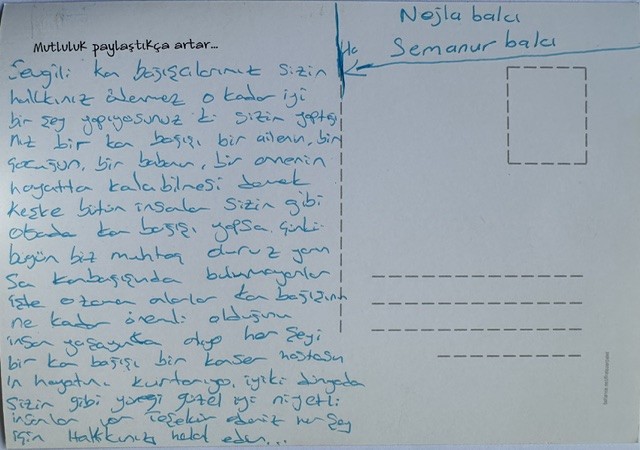 Nejla balcı
Semanur balcı
Mutluluk paylaştıkça artar...
Sevgili kan bağışcılarımız sizin
hakkınız ödenmez o kadar iyi
bir şey yapıyosunuz ki sizin yaptığı
nız bir kan bağışı bir ailenin, bir
çocuğun, bir babanın, bir annenin
hayatta kalabilmesi demek
keşke bütün insanlar sizin gibi
olsada kan bağışı yapsa. Çünkü
bugün biz muhtaç oluruz yarın
Kanbağışında bulunmayanlar
işte o zaman onlarlar kan bağışının
ne kadar önemli olduğunu
insan yaşayınca her şeyi
bir kan bağışı bir kanser hastası
ın hayatını kurtarıyo, iyiki dünyada
sizin gibi yüreği güzel iyi niyetli
insanlar var teşekür ederiz her şey
için Hakkınızı helal edin...